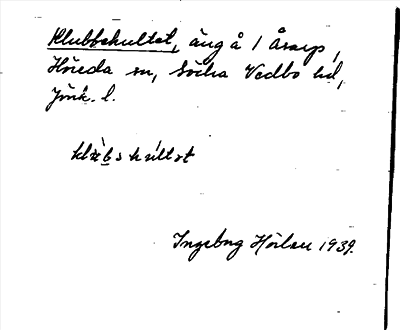 Klubbekultet, äng å 1 Årarp,
Höreda sn, Södra Vedbo hd,
Jönk. l.
Ingeborg Hörlen 1939.